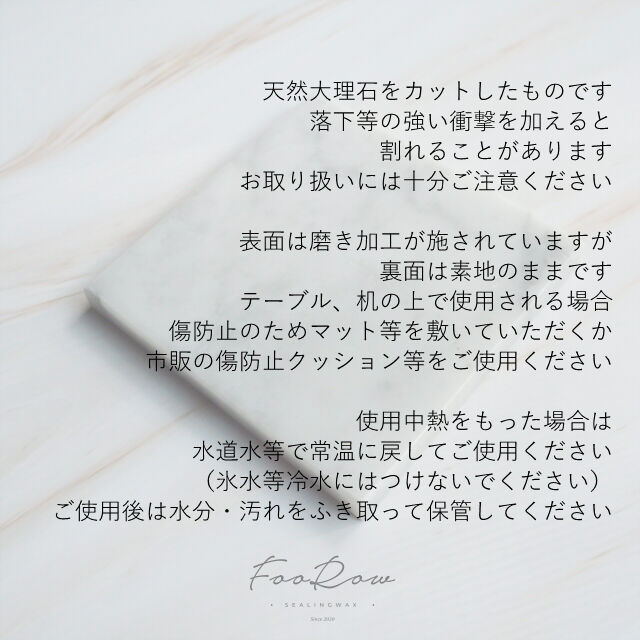 天然大理石をカットしたものです
落下等の強い衝撃を加えると
割れることがあります
お取り扱いには十分ご注意ください
表面は磨き加工が施されていますが
裏面は素地のままです
テーブル、机の上で使用される場合
傷防止のためマット等を敷いていただくか
市販の傷防止クッション等をご使用ください
使用中熱をもった場合は
水道水等で常温に戻してご使用ください
（氷水等冷水にはつけないでください）
ご使用後は水分・汚れをふき取って保管してください
FooRow
• SEALINGWAX •
Since 2020